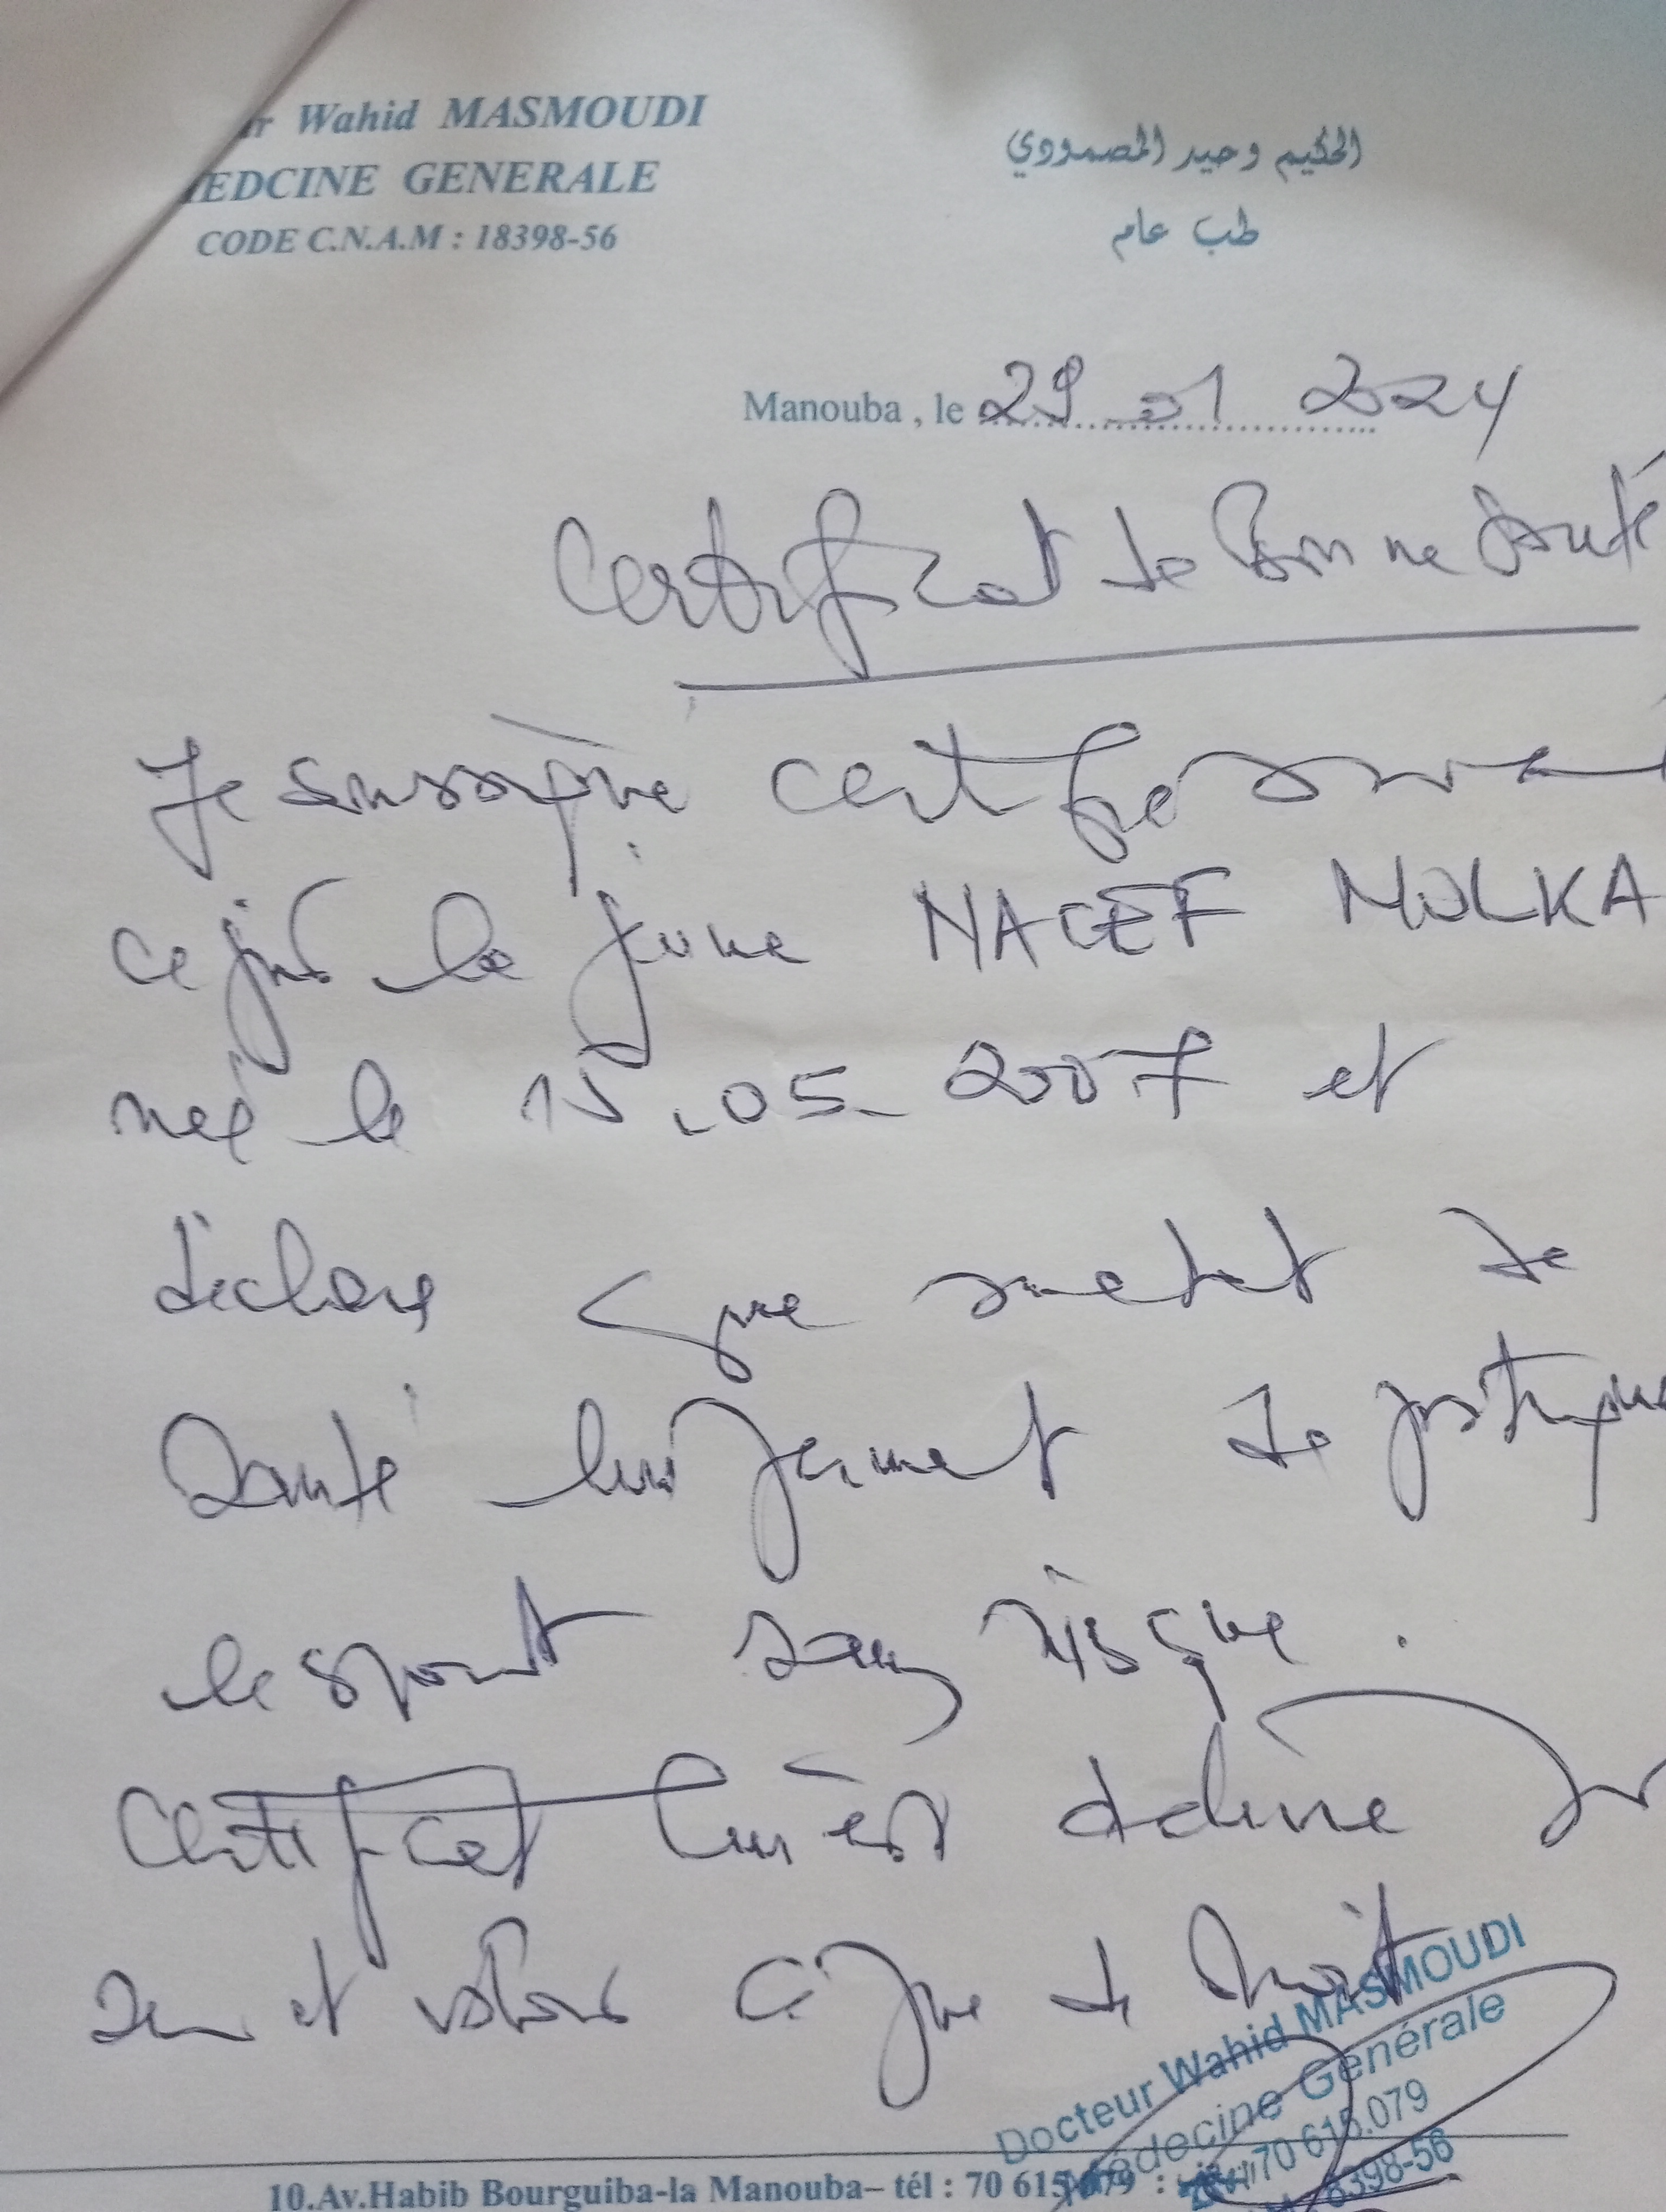 Wahid MASMOUDI
EDCINE GENERALE
CODE C.N.A.M : 18398-56
الحكيم وحيد المصمودي
طب عام
Manouba , le 29 01 2024
Certificat de Bonne Santé
Je soussigné certifie avoir
ce jour la jeune NACEF MOLKA
née le 15.05-2007 et
déclare que son état de
Santé lui permet de pratiquer
le sport sans risque .
Certificat lui est délivré pour
et valoir ce que de droit
Docteur Wahid MASMOUDI
Médecine Générale
70 615.079
8398-56
10.Av.Habib Bourguiba-la Manouba– tél : 70 615 079 :